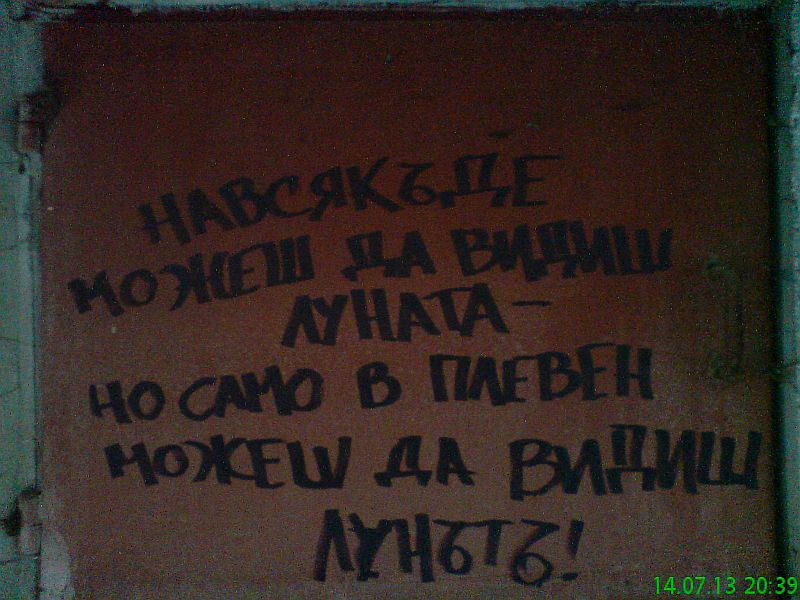 НАВСЯКЪДЕ
МОЖЕШ ДА ВИДИШ
ЛУНАТА -
НО САМО В ПЛЕВЕН
МОЖЕШ ДА ВИДИШ
ЛУНЪТЪ!
14.07.13 20:39